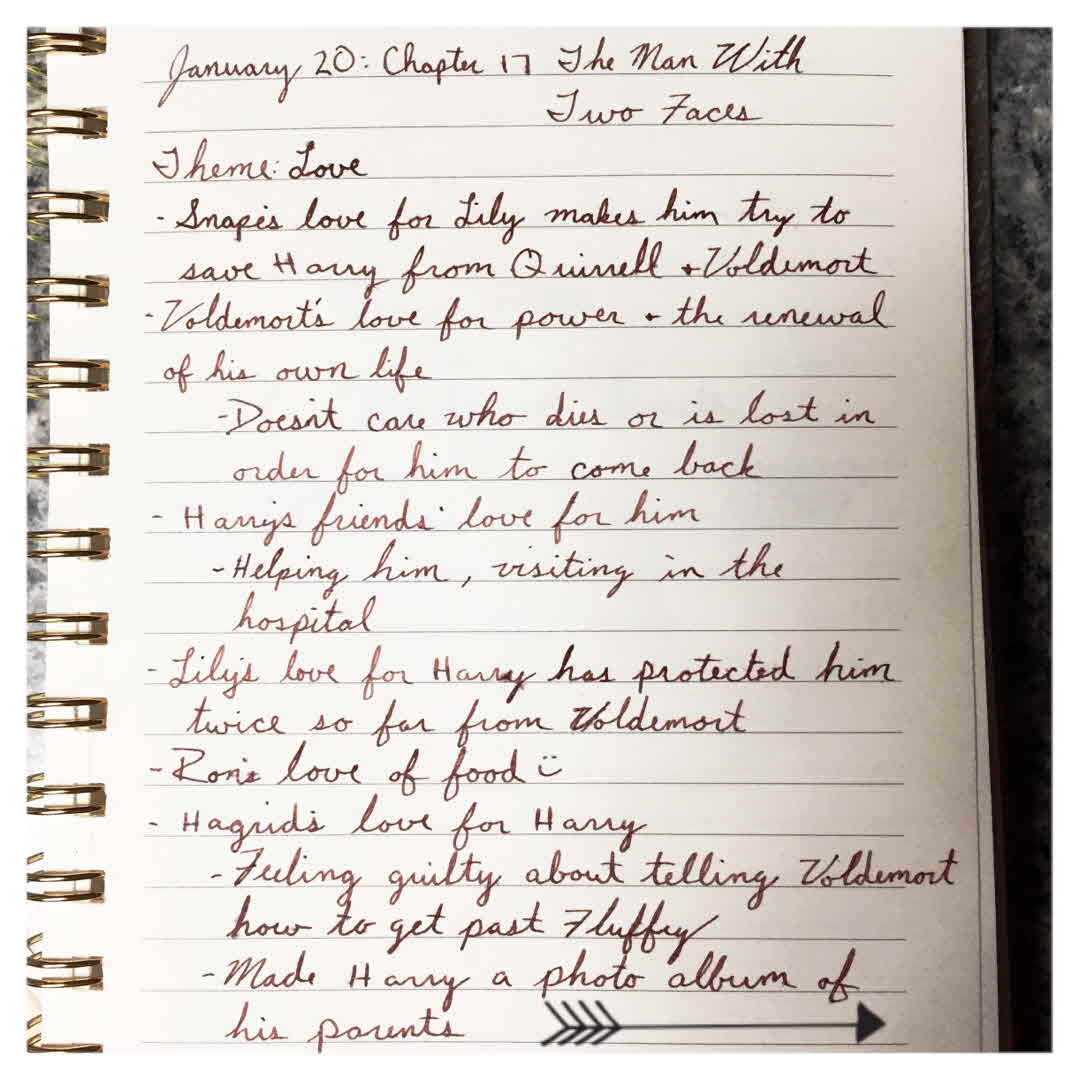 January 20: Chapter 17 The Man With
Two Faces
Theme: Love
- Snape's love for Lily makes him try to
save Harry from Quirrell + Voldemort
- Voldemort's love for power + the renewal
of his own life
- Doesn't care who dies or is lost in
order for him to come back
- Harry's friends' love for him
- Helping him, visiting in the
hospital
- Lily's love for Harry has protected him
twice so far from Voldemort
- Ron's love of food :)
- Hagrid's love for Harry
- Feeling guilty about telling Voldemort
how to get past Fluffy
- Made Harry a photo album of
his parents